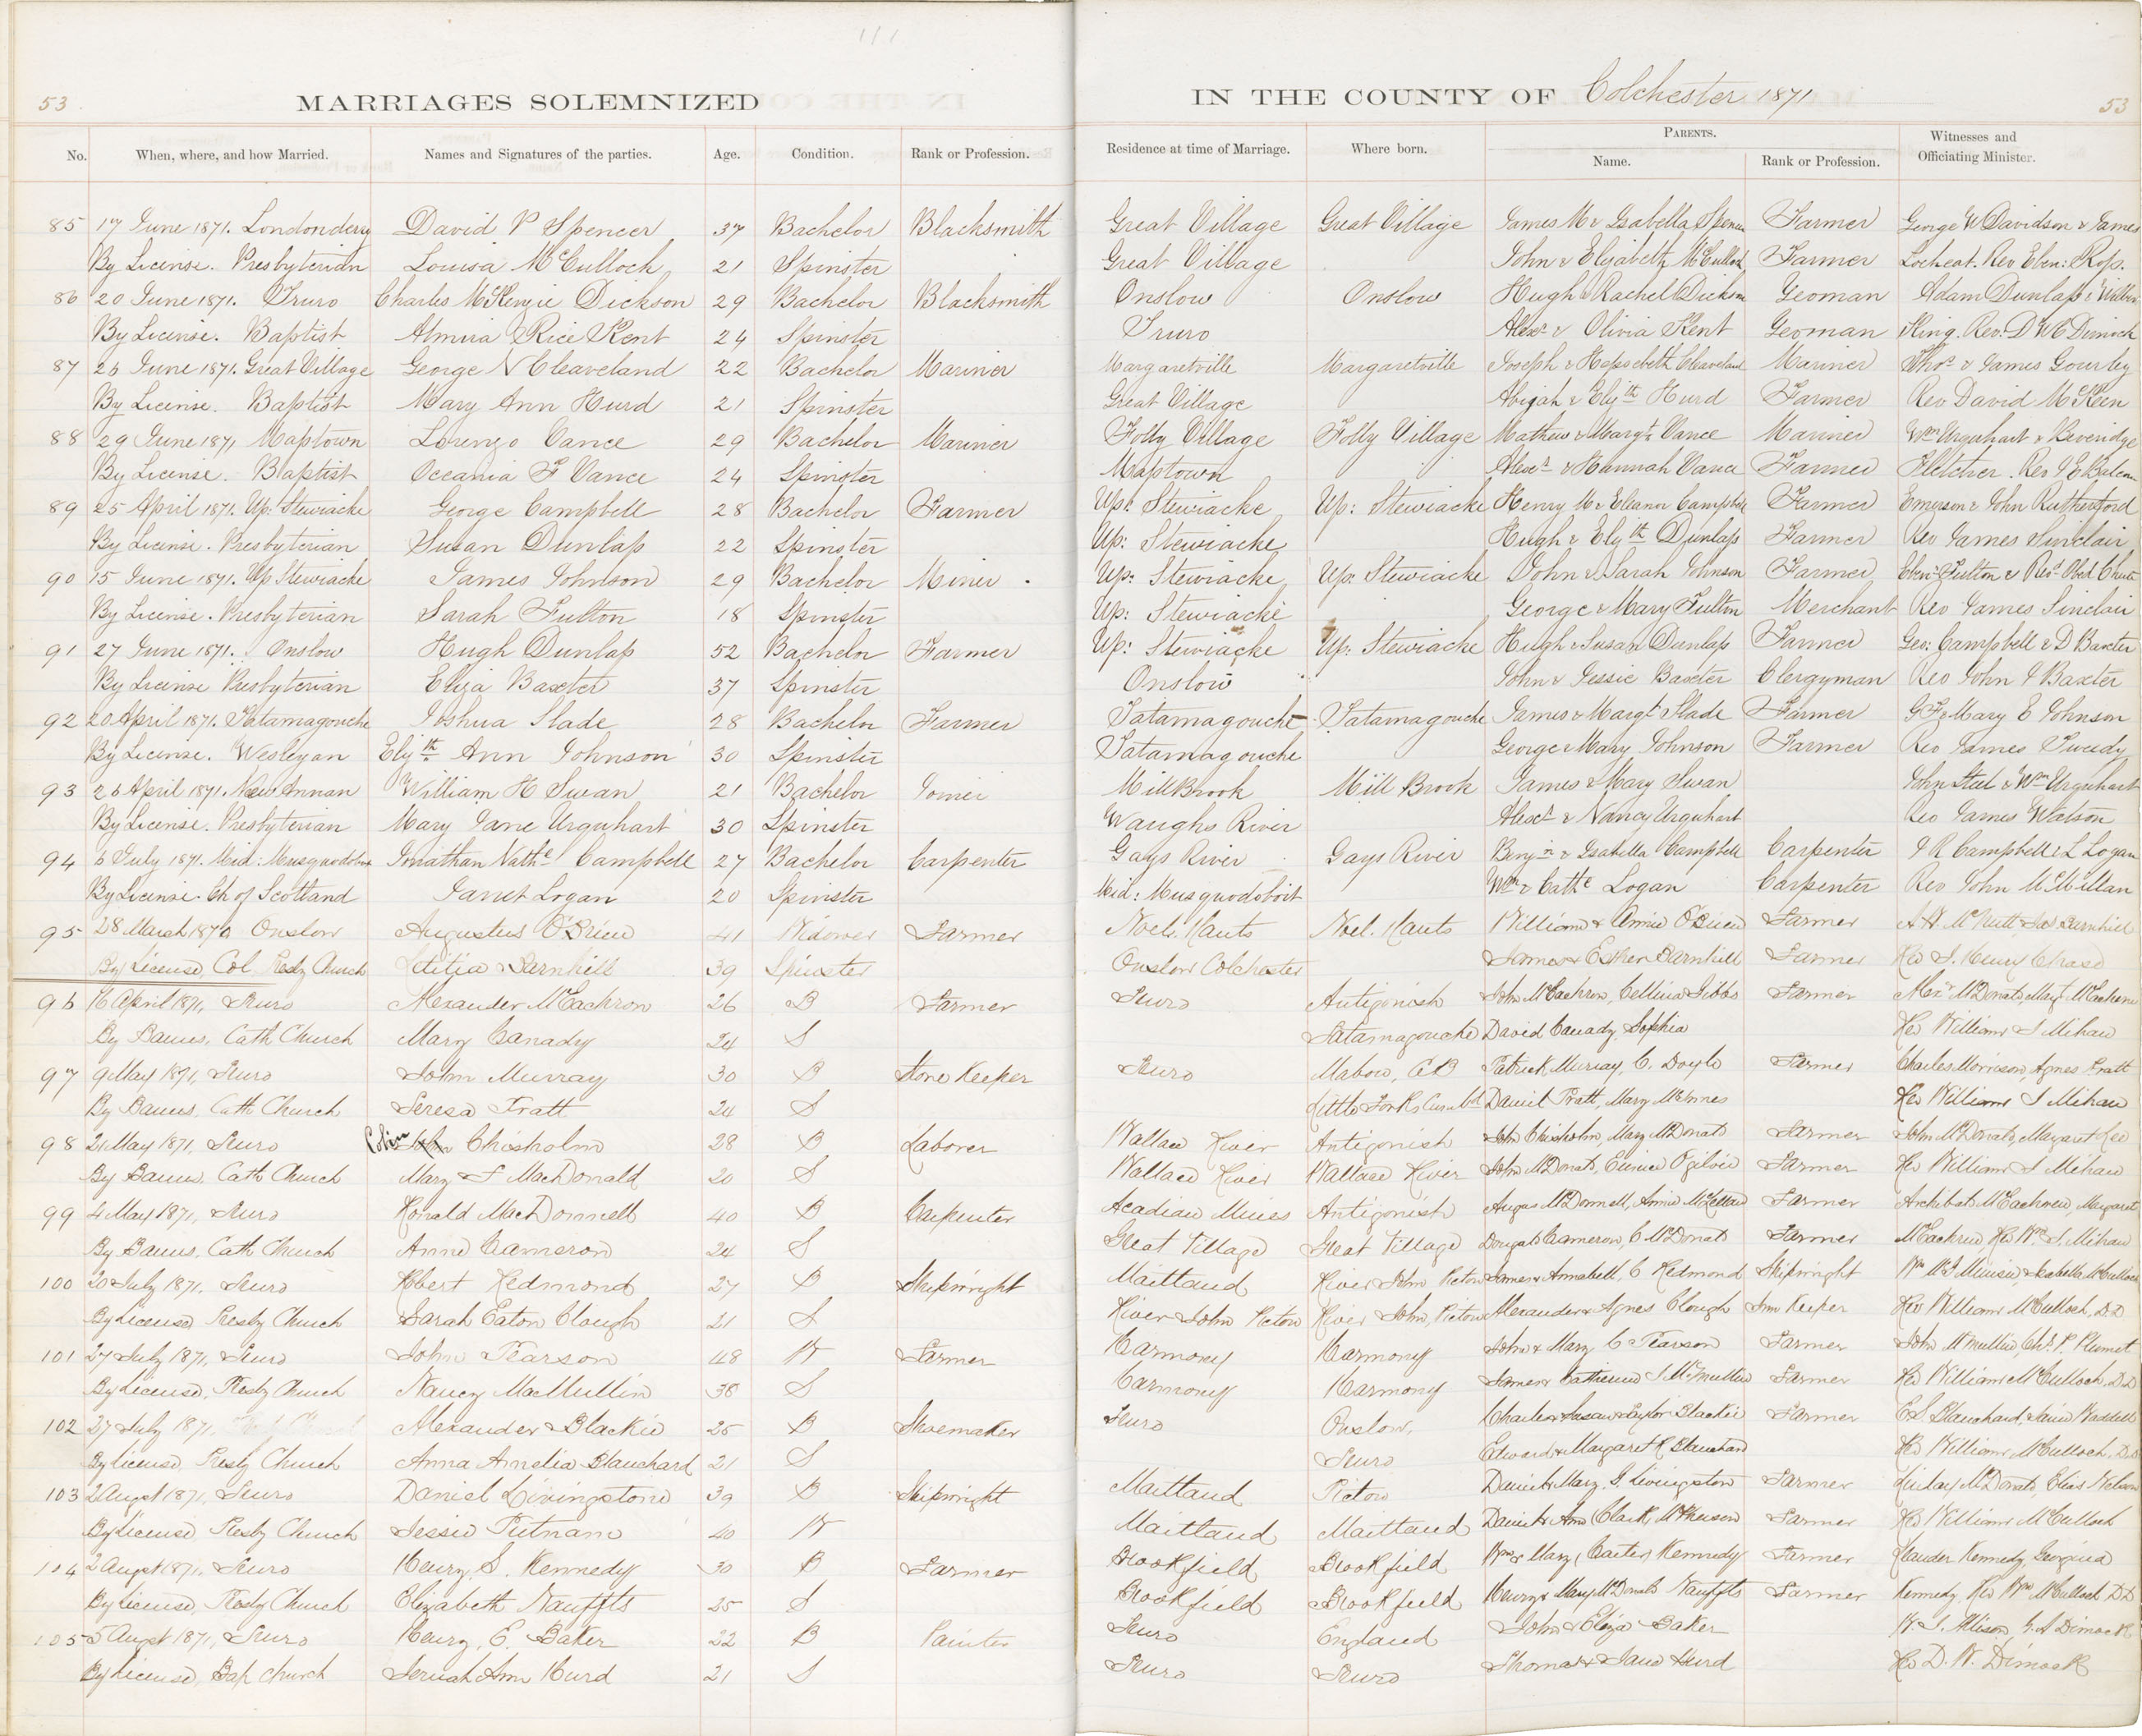 111
53 MARRIAGES SOLEMNIZED IN THE COUNTY OF Colchester 1871 53
No. When, where, and how Married. Names and Signatures of the parties. Age. Condition. Rank or Profession. Residence at time of Marriage. Where born. PARENTS. Name. Rank or Profession. Witnesses and Officiating Minister.
85 17 June 1871. Londonderry David P Spencer 37 Bachelor Blacksmith Great Village Great Village James M & Isabella Spencer Farmer George W Davidson & James
By License. Presbyterian Louisa McCulloch 21 Spinster Great Village John & Elizabeth McCulloch Farmer Locheat. Rev Eben: Ross.
86 20 June 1871. Truro Charles McKenzie Dickson 29 Bachelor Blacksmith Onslow Onslow Hugh & Rachel Dickson Yeoman Adam Dunlap &
By License. Baptist Almira Rice Kent 24 Spinster Truro Alexr & Olivia Kent Yeoman King. Rev. D W C Dimock
87 26 June 1871. Great Village George N Cleaveland 22 Bachelor Mariner Margaretville Margaretville Joseph & Hepsebeth Cleaveland Mariner Thos & James Gourley
By License. Baptist Mary Ann Hurd 21 Spinster Great Village Abijah & Elizth Hurd Farmer Rev David McKeen
88 29 June 1871 Maptown Lorenzo Vance 29 Bachelor Mariner Folly Village Folly Village Mathew & Margt Vance Mariner Wm Urquhart & Beveridge
By License. Baptist Oceania F Vance 24 Spinster Maptown Alexr & Hannah Vance Farmer Fletcher. Rev J E Balcom
89 25 April 1871. Up: Stewiacke George Campbell 28 Bachelor Farmer Up: Stewiacke Up: Stewiacke Henry M & Eleann Campbell Farmer Emerson & John Rutherford
By License. Presbyterian Susan Dunlap 22 Spinster Up: Stewiacke Hugh & Elizth Dunlap Farmer Rev James Sinclair
90 15 June 1871. Up Stewiacke James Johnson 29 Bachelor Miner Up: Stewiacke Up: Stewiacke John & Sarah Johnson Farmer Ebenr Fulton & Revd Obed Chute
By License. Presbyterian Sarah Fulton 18 Spinster Up: Stewiacke George & Mary Fulton Merchant Rev James Sinclair
91 27 June 1871. Onslow Hugh Dunlap 52 Bachelor Farmer Up: Stewiacke Up: Stewiacke Hugh & Susan Dunlap Farmer Geo: Campbell & D Baxter
By License Presbyterian Eliza Baxter 37 Spinster Onslow John & Jessie Baxter Clergyman Rev John I Baxter
92 20 April 1871. Tatamagouche Joshua Slade 28 Bachelor Farmer Tatamagouche Tatamagouche James & Margt Slade Farmer G F & Mary E Johnson
By License. Wesleyan Elizth Ann Johnson 30 Spinster Tatamagouche George & Mary Johnson Farmer Rev James Tweedy
93 26 April 1871. New Annan William H Swan 21 Bachelor Joiner Mill Brook Mill Brook James & Mary Swan John Steel & Wm Urquhart
By License. Presbyterian Mary Jane Urquhart 30 Spinster Waughs River Alexr & Nancy Urquhart Rev James Watson
94 6 July 1871. Mid: Musquodobot Jonathan Nathl Campbell 27 Bachelor Carpenter Gays River Gays River Benjn & Isabella Campbell Carpenter J R Campbell & L Logan
By License. Ch of Scotland Janet Logan 20 Spinster Mid: Musquodoboit Wm & Cathe Logan Carpenter Rev John McMillan
95 28 March 1870 Onslow Augustus O'Brien 41 Widower Farmer Noel. Hants Noel. Hants William & Annie O'Brien Farmer A. H. McNutt, Jas Barnhill
By License, Col. Presby Church Letitia Barnhill 39 Spinster Onslow Colchester James & Esther Barnhill Farmer Rev J. Henry Chase
96 16 April 1871, Truro Alexander McEachron 26 B Farmer Truro Antigonish John McEachron, Cellina Gibbs Farmer Alexr McDonald, Mayt McEachron
By Banns, Cath Church Mary Canady 24 S Tatamagouche David Canady, Sophia Rev William S Mihan
97 9 May 1871, Truro John Murray 30 B Stone Keeper Truro Mabou, CB Patrick Murray, C. Doyle Farmer Charles Morrison, Agnes Pratt
By Banns, Cath Church Teresa Pratt 24 S Little Forks Cumbd Daniel Pratt, Mary McInnes Rev William S Mihan
98 21 May 1871, Truro Colin John Chisholm 28 B Laborer Wallace River Antigonish John Chisholm, Mary McDonald Farmer John McDonald, Margaret Lee
By Banns, Cath Church Mary S MacDonald 20 S Wallace River Wallace River John McDonald, Eunice Ogilvie Farmer Rev William S Mihan
99 4 May 1871, Truro Ronald MacDonnell 40 B Carpenter Acadian Mines Antigonish Angus McDonnell, Annie McLellan Farmer Archibald McEachren, Margaret
By Banns, Cath Church Anne Cameron 24 S Great Village Great Village Dougald Cameron, C McDonald Farmer McEachren, Rev Wm S. Mihan
100 20 July 1871, Truro Robert Redmond 27 B Shipwright Maitland River John Pictou James & Annabell, C Redmond Shipwright Isabella McCulloch
By License, Presby Church Sarah Eaton Clough 21 S River John Pictou River John, Pictou Alexander & Agnes Clough Inn Keeper Rev William McCulloch, D.D
101 27 July 1871, Truro John Pearson 48 W Farmer Harmony Harmony John & Mary C Pearson Farmer John McMullin, Chs. P. Plumet
By License, Presby Church Nancy MacMullin 38 S Harmony Harmony James & Catherine J. McMullin Farmer Rev William McCulloch, D.D
102 27 July 1871, Alexander Blackie 25 B Shoemaker Truro Onslow, Charles & Susan Taylor Blackie Farmer E S Blanchard, Janie Waddell
By License, Presby Church Anna Amelia Blanchard 21 S Truro Edward & Margaret R Blanchard Rev William McCulloch, D.D
103 2 Augst 1871, Truro Daniel Livingstone 39 B Shipwright Maitland Pictou Daniel & Mary G. Livingston Farmer Finlay McDonald, Elias Nelson
By License Presby Church Jessie Putnam 40 W Maitland Maitland Daniel & Ann (Clark) McPherson Farmer Rev William McCulloch
104 2 Augst 1871, Truro Henry S. Kennedy 30 B Farmer Brookfield Brookfield Wm & Mary (Carter) Kennedy Farmer Kennedy, Georgina
By License, Presby Church Elizabeth Nauffts 25 S Brookfield Brookfield Henry & Mary McDonald Nauffts Farmer Kennedy, Rev Wm McCulloch DD
105 5 Augst 1871, Truro Henry, E. Baker 22 B Painter Truro England John & Eliza Baker W. S. Allison, G. A Dimock
By License, Bap Church Jerusha Ann Hurd 21 S Truro Truro Thomas & Jane Hurd Rev D. W. Dimock